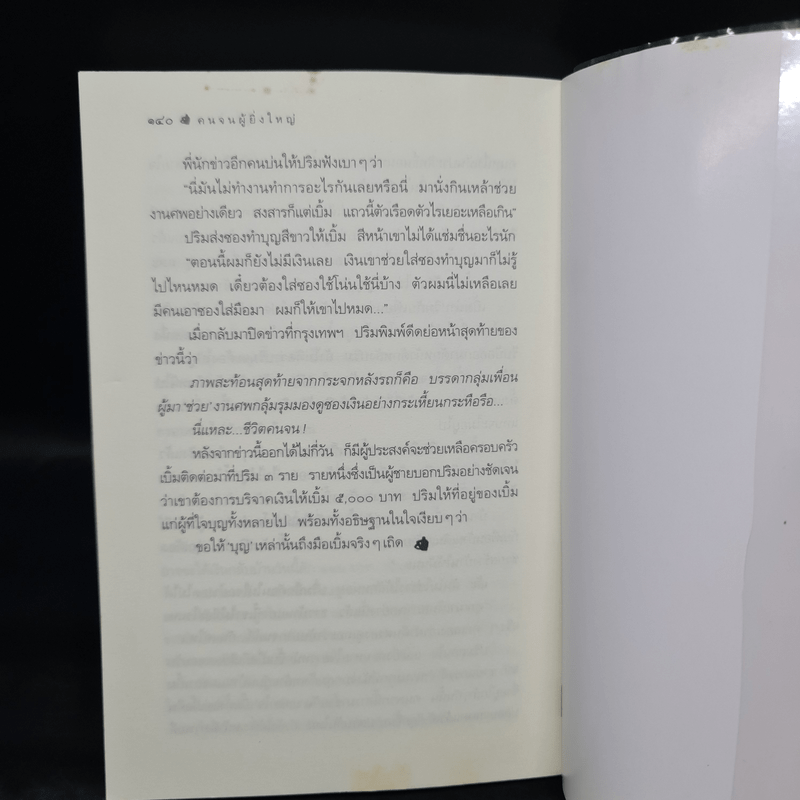 ๑๔๐ คนจนผู้ยิ่งใหญ่
พี่นักข่าวอีกคนบ่นให้ปริมฟังเบา ๆ ว่า
"นี่มันไม่ทำงานทำการอะไรกันเลยหรือนี่ มานั่งกินเหล้าช่วย
งานศพอย่างเดียว สงสารก็แต่เบิ้ม แถวนี้ตัวเรือดตัวไรเยอะเหลือเกิน"
ปริมส่งซองทำบุญสีขาวให้เบิ้ม สีหน้าเขาไม่ได้แช่มชื่นอะไรนัก
"ตอนนี้ผมก็ยังไม่มีเงินเลย เงินเขาช่วยใส่ซองทำบุญมาก็ไม่รู้
ไปไหนหมด เดี๋ยวต้องใส่ซองใช้โน่นใช้นี่บ้าง ตัวผมนี่ไม่เหลือเลย
มีคนเอาซองใส่มือมา ผมก็ให้เขาไปหมด..."
เมื่อกลับมาปิดข่าวที่กรุงเทพฯ ปริมพิมพ์ดีดย่อหน้าสุดท้ายของ
ข่าวนี้ว่า
ภาพสะท้อนสุดท้ายจากกระจกหลังรถก็คือ บรรดากลุ่มเพื่อน
ผู้มา 'ช่วย' งานศพกลุ้มรุมมองดูซองเงินอย่างกระเหี้ยนกระหือรือ...
นี่แหละ...ชีวิตคนจน !
หลังจากข่าวนี้ออกได้ไม่กี่วัน ก็มีผู้ประสงค์จะช่วยเหลือครอบครัว
เบิ้มติดต่อมาที่ปริม ๓ ราย รายหนึ่งซึ่งเป็นผู้ชายบอกปริมอย่างชัดเจน
ว่าเขาต้องการบริจาคเงินให้เบิ้ม ๕,๐๐๐ บาท ปริมให้ที่อยู่ของเบิ้ม
แก่ผู้ที่ใจบุญทั้งหลายไป พร้อมทั้งอธิษฐานในใจเงียบ ๆ ว่า
ขอให้ 'บุญ' เหล่านั้นถึงมือเบิ้มจริง ๆ เถิด